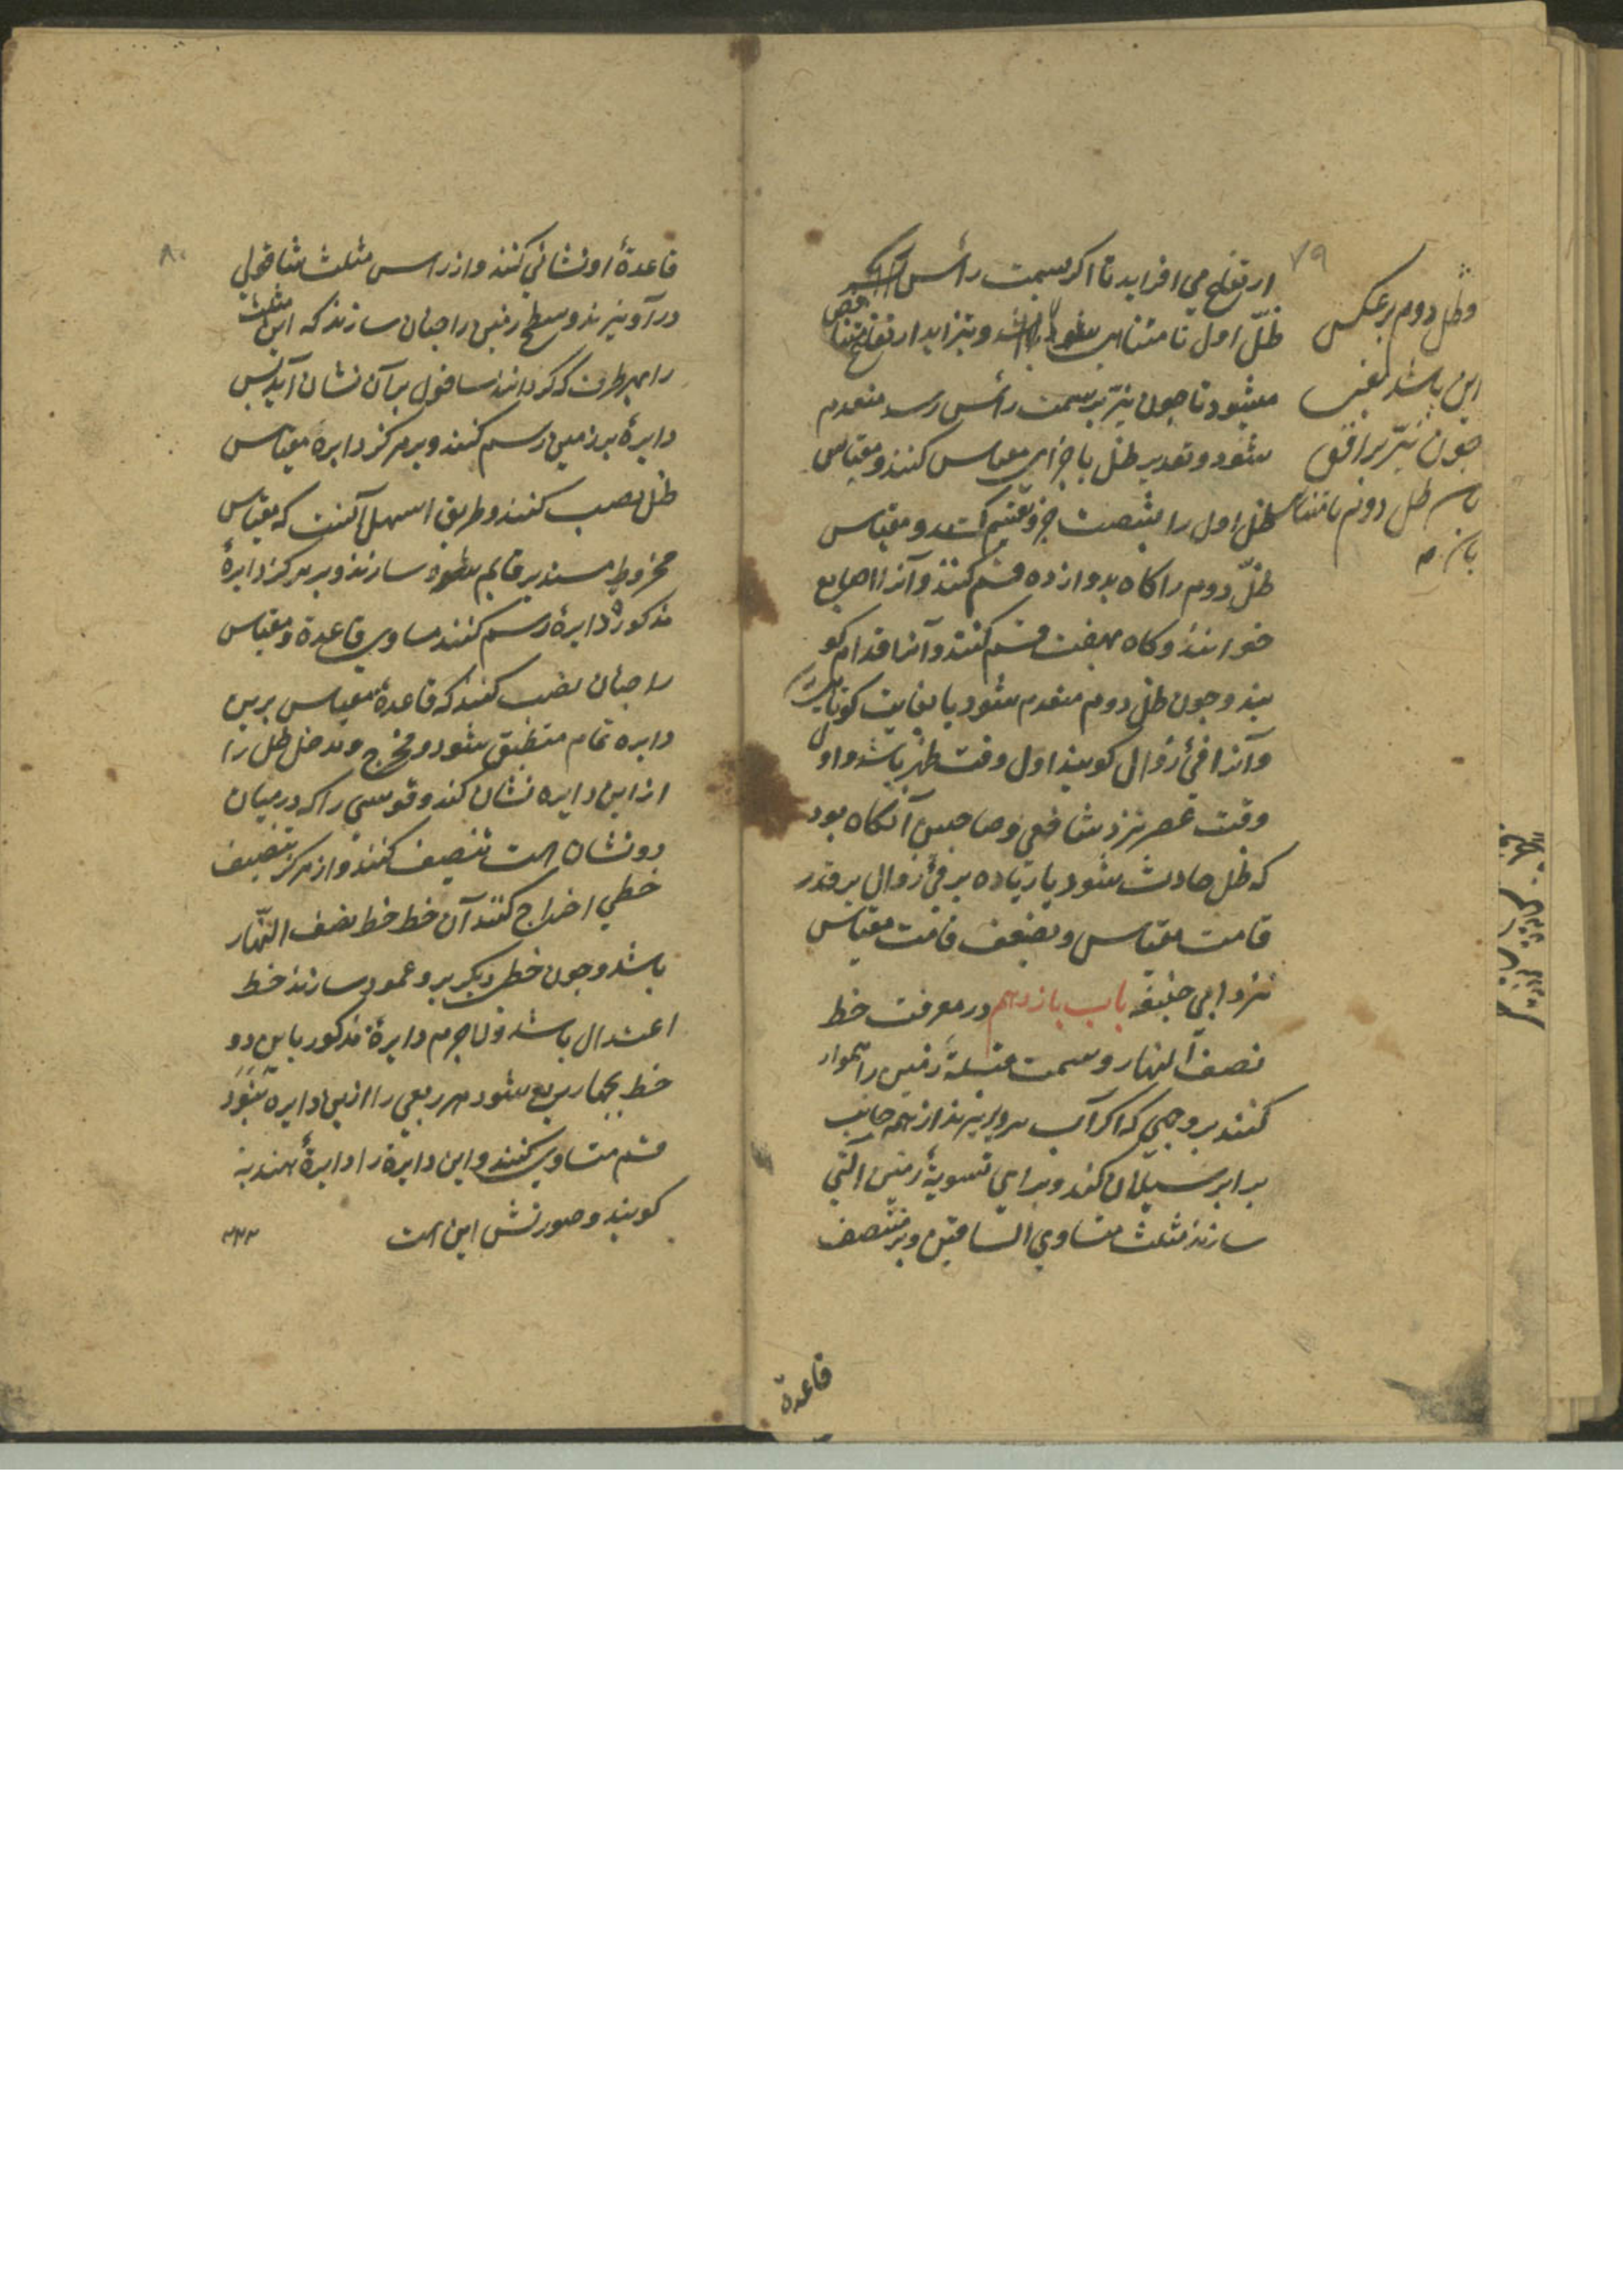 ۷۹
ارتفاع می افزاید تا اکر بسمت رأس
ظلّ اول نا متناهی شود و بتزاید ارتفاع متناقص
میشود تا جون نیّر بسمت رأس رسد منعدم
شود و تقدیر ظل باجزای مقیاس کنند و مقیاس
ظل اول را بشصت جزو تقسیم کنند و مقیاس
ظلّ دوم را کاه بدوازده قسم کنند و آنرا اصابع
خوانند و کاه بهفت قسم کنند و آنرا اقدام کو
یند و جون ظل دوم منعدم شود یا بغایت کوتاهی رسد
و آنرا فیٔ زوال کویند اول وقت ظهر باشد و اول
وقت عصر نزد شافعی و صاحبین آنکاه بود
که ظل حادث شود یا زیاده بر فیٔ زوال بر قدر
قامت مقیاس و بضعف قامت مقیاس
نزد ابی حنیفه باب یازدهم در معرفت خط
نصف النهار و سمت قبله زمین را هموار
کنند بروجهی که اکر آب برو بریزند از همه جانب
برابر سیلان کند و برای تسویهٔ زمین آلتی
سازند مثلث متساوی الساقین و بر منتصف
قاعدة
وظل دوم بر عکس
این باشد یعنی
جون نیّر بر افق
ظل دوم نا متناهی
۸۰
قاعدهٔ او نشانی کنند و از راس مثلث شاقولی
درآویزند و سطح زمین را جنان سازند که این مثلث
را بهر طرف که کردانند شاقول بر آن نشان آید پس
دایرهٔ بر زمین رسم کنند و بر مرکز دایره مقیاس
ظل نصب کنند و طریق اسهل آنست که مقیاس
مخروط مستدیر قایم سازند و بر مرکز دایرهٔ
مذکوره دایرهٔ رسم کنند مساوی قاعدة و مقیاس
را جنان نصب کنند که قاعدهٔ مقیاس برین
دایره تمام منطبق شود و مخرج و مدخل ظل را
از این دایره نشان کند و قوسی را که در میان
دو نشان است تنصیف کنند و از مرکز بتنصیف
خطی اخراج کنند آن خط خط نصف النهار
باشد و جون خطی دیکر برو عمود سازند خط
اعتدال باشد و لاجرم دایرهٔ مذکور باین دو
خط بجهار ربع شود هر ربعی را ازین دایره بنود
قسم متساوی کنند و این دایرة را دایرهٔ هندیه
کویند و صورتش این است